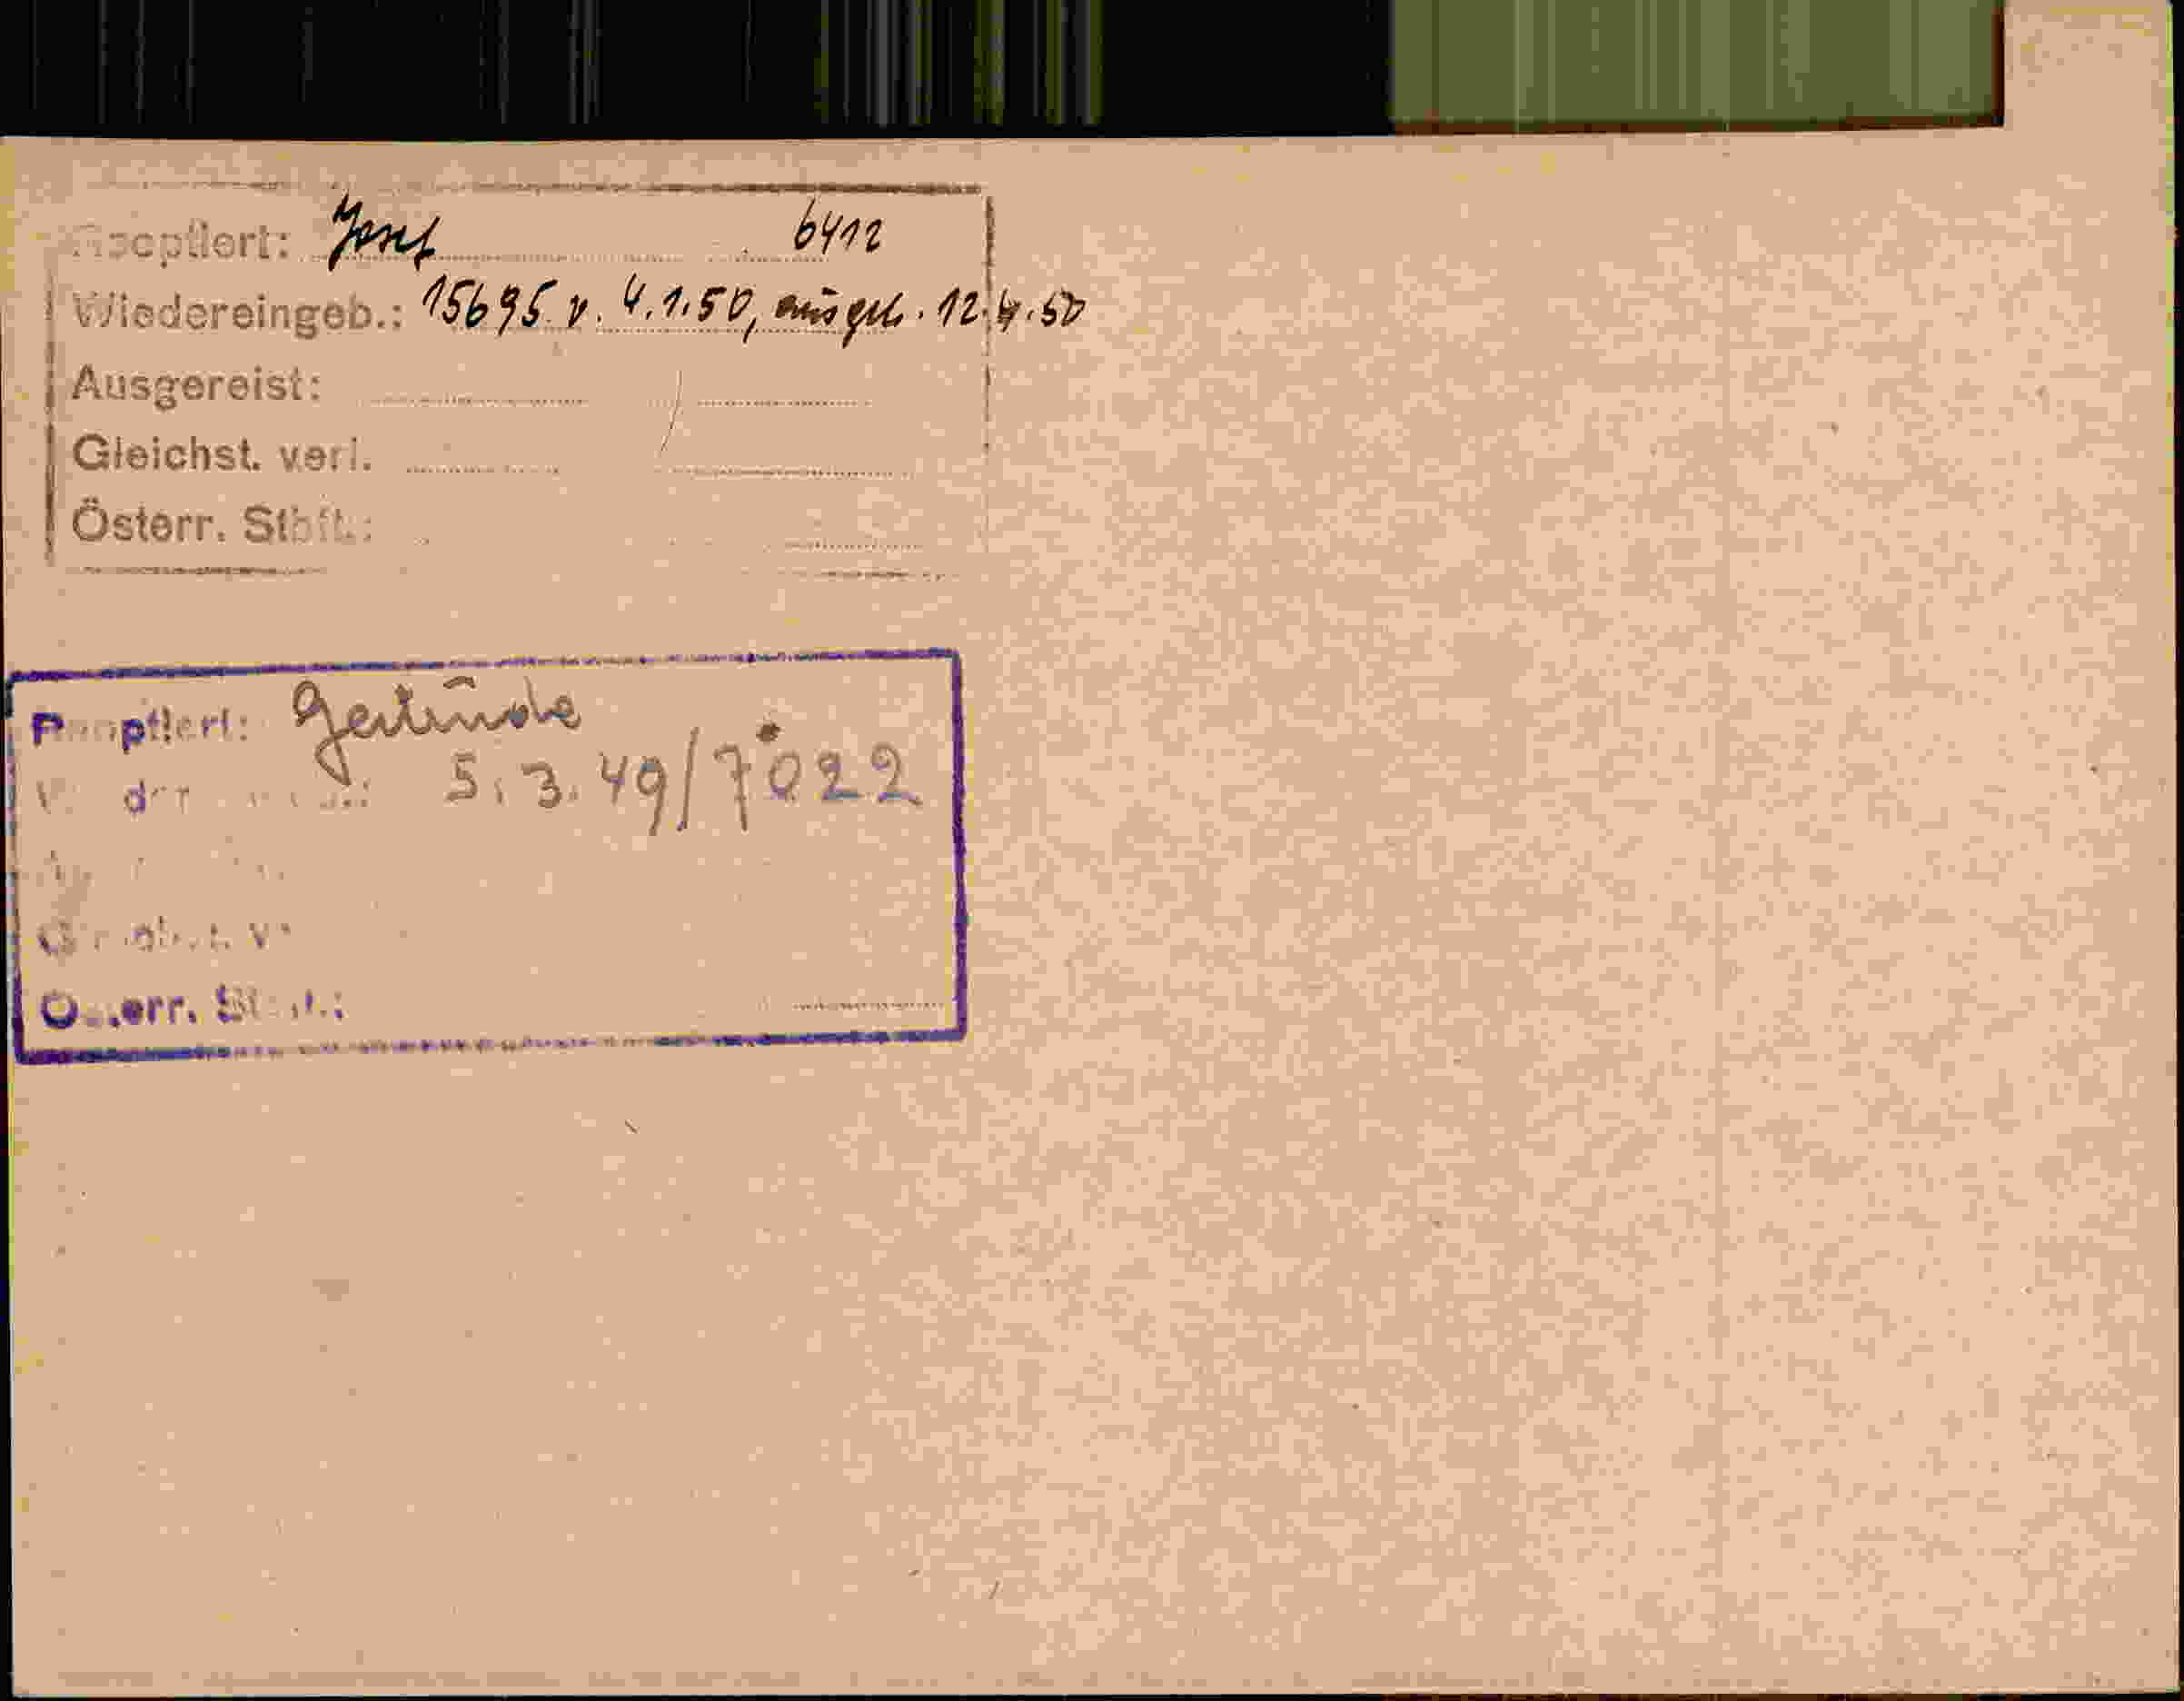 Reoptiert: Josef 6412
Wiedereingeb.: 15695 v. 4.1.50, ausgeh. 12.4.50
Ausgereist:
Gleichst. verl.
Österr. Stbft.:
Reoptiert: Gerlinde
5.3.49/7022
Österr.